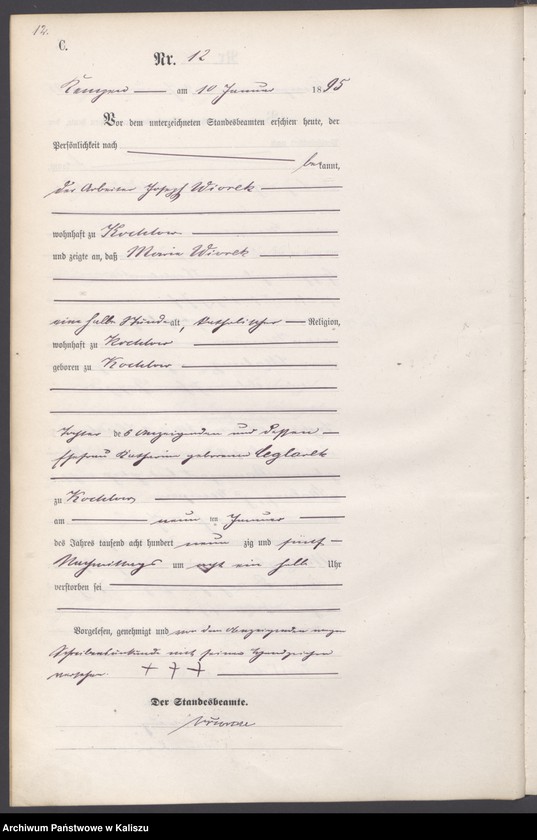 12.
C.
Nr. 12
Kempen am 10 Januar 1895
Vor dem unterzeichneten Standesbeamten erschien heute, der
Persönlichkeit nach
bekannt,
der Arbeiter Joseph Wiorek
wohnhaft zu Kochlow
und zeigte an, daß Maria Wiorek
eine halbe Stunde alt, katholischer Religion,
wohnhaft zu Kochlow
geboren zu Kochlow
Tochter des Anzeigenden und dessen
Ehefrau Katharina geborene Ceglarek
zu Kochlow
am neun ten Januar
des Jahres tausend acht hundert neun zig und fünf
Nachmittags um acht ein halb Uhr
verstorben sei
Vorgelesen, genehmigt und von dem Anzeigenden wegen
Schreibensunkunde mit seinem Handzeichen
versehen + + +
Der Standesbeamte.
Archiwum Państwowe w Kaliszu